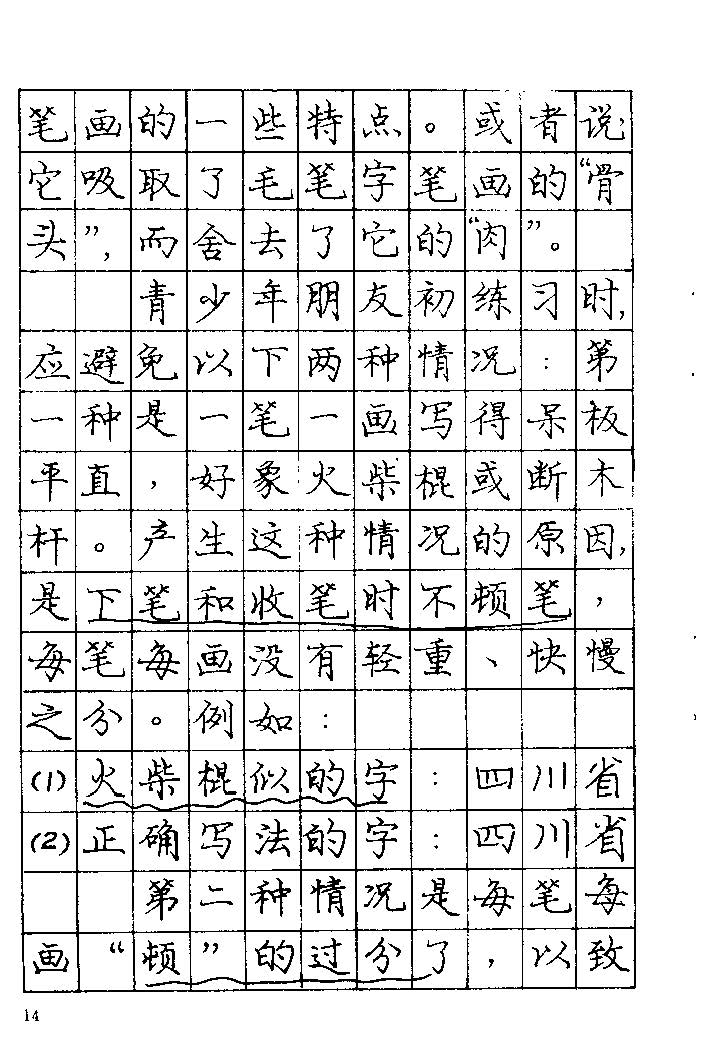 笔画的一些特点。或者说:
它吸取了毛笔字笔画的“骨
头”,而舍去了它的“肉”。
青少年朋友初练习时,
应避免以下两种情况:第
一种是一笔一画写得呆板
平直,好象火柴棍或断木
杆。产生这种情况的原因,
是下笔和收笔时不顿笔,
每笔每画没有轻重、快慢
之分。例如:
(1)火柴棍似的字:四川省
(2)正确写法的字:四川省
第二种情况是每笔每
画“顿”的过分了,以致
14